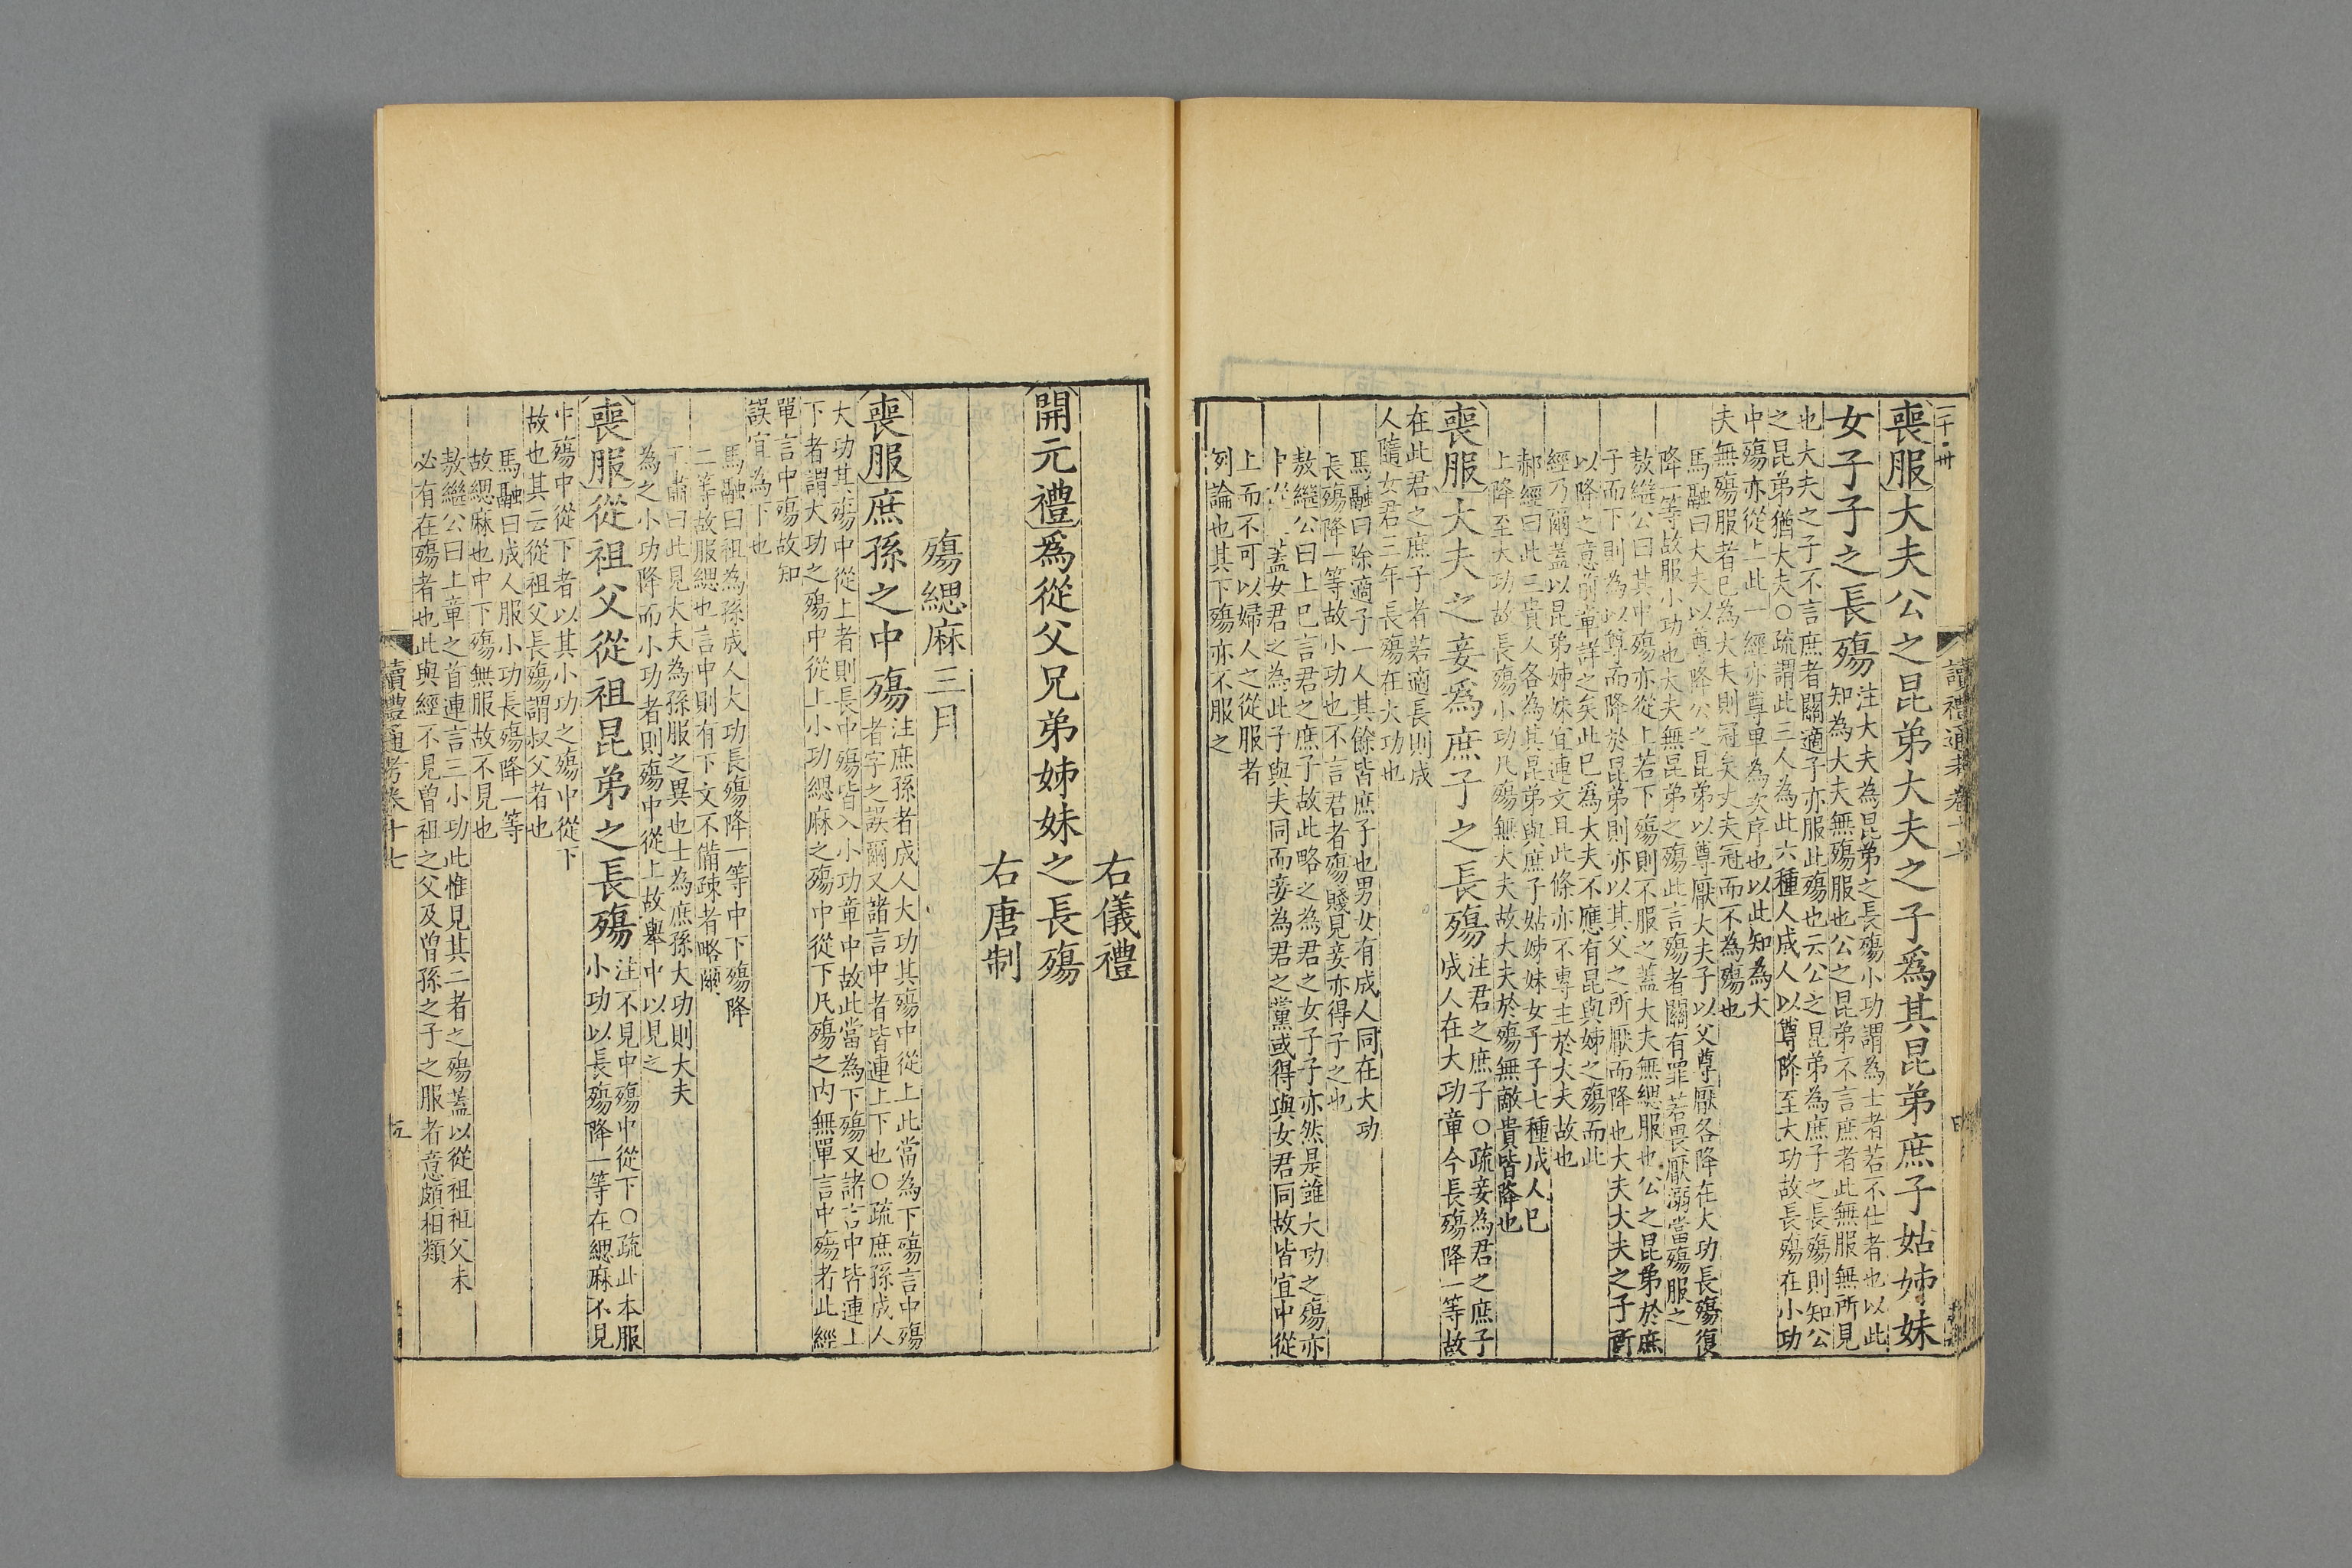 喪服大夫公之昆弟大夫之子爲其昆弟庶子姑姊妹
女子子之長殤
注大夫為昆弟之長殤小功謂為士者若不仕者也以此
知為大夫無殤服也公之昆弟不言庶者此無服無所見
也大夫之子不言庶者關適子亦服此殤也云公之昆弟為庶子之長殤則知公
之昆弟猶大夫○疏謂此三人為此六種人成人以尊降至大功故長殤在小功
中殤亦從上此一經亦尊卑為次序也以此知為大
夫無殤服者已為大夫則冠矣丈夫冠而不為殤也
馬融曰大夫以尊降公之昆弟以尊厭大夫子以父尊厭各降在大功長殤復
降一等故服小功也大夫無昆弟之殤此言殤者關有罪若畏厭溺當殤服之
敖繼公曰其中殤亦從上若下殤則不服之蓋大夫無緦服也公之昆弟於庶
子而下則為以尊而降於昆弟則亦以其父之所厭而降也大夫大夫之子所
以降之意前章詳之矣此已為大夫不應有昆與姊之殤而此
經乃爾蓋以昆弟姊妹宜連文且此條亦不專主於大夫故也
郝經曰此三貴人各為其昆弟與庶子姑姊妹女子子七種成人已
上降至大功故長殤小功凡殤無大夫故大夫於殤無敵貴皆降也
喪服大夫之妾爲庶子之長殤
注君之庶子○疏妾為君之庶子
成人在大功章今長殤降一等故
在此君之庶子者若適長則成
人隨女君三年長殤在大功也
馬融曰除適子一人其餘皆庶子也男女有成人同在大功
長殤降一等故小功也不言君者殤賤見妾亦得子之也
敖繼公曰上巳言君之庶子故此略之為君之女子子亦然是雖大功之殤亦
中從上蓋女君之為此子與夫同而妾為君之黨或得與女君同故皆宜中從
上而不可以婦人之從服者
例論也其下殤亦不服之
讀禮通考卷十七
右儀禮
開元禮爲從父兄弟姊妹之長殤
右唐制
殤緦麻三月
喪服庶孫之中殤
注庶孫者成人大功其殤中從上此當為下殤言中殤
者字之誤爾又諸言中者皆連上下也○疏庶孫成人
大功其殤中從上者則長中殤皆入小功章中故此當為下殤又諸言中皆連上
下者謂大功之殤中從上小功緦麻之殤中從下凡殤之内無單言中殤者此經
單言中殤故知
誤宜為下也
馬融曰祖為孫成人大功長殤降一等中下殤降
二等故服緦也言中則有下文不備疎者略爾
王肅曰此見大夫為孫服之異也士為庶孫大功則大夫
為之小功降而小功者則殤中從上故舉中以見之
喪服從祖父從祖昆弟之長殤
注不見中殤中從下○疏此本服
小功以長殤降一等在緦麻不見
中殤中從下者以其小功之殤中從下
故也其云從祖父長殤謂叔父者也
馬融曰成人服小功長殤降一等
故緦麻也中下殤無服故不見也
敖繼公曰上章之首連言三小功此惟見其二者之殤蓋以從祖祖父未
必有在殤者也此與經不見曽祖之父及曽孫之子之服者意頗相類
讀禮通考卷十七
五